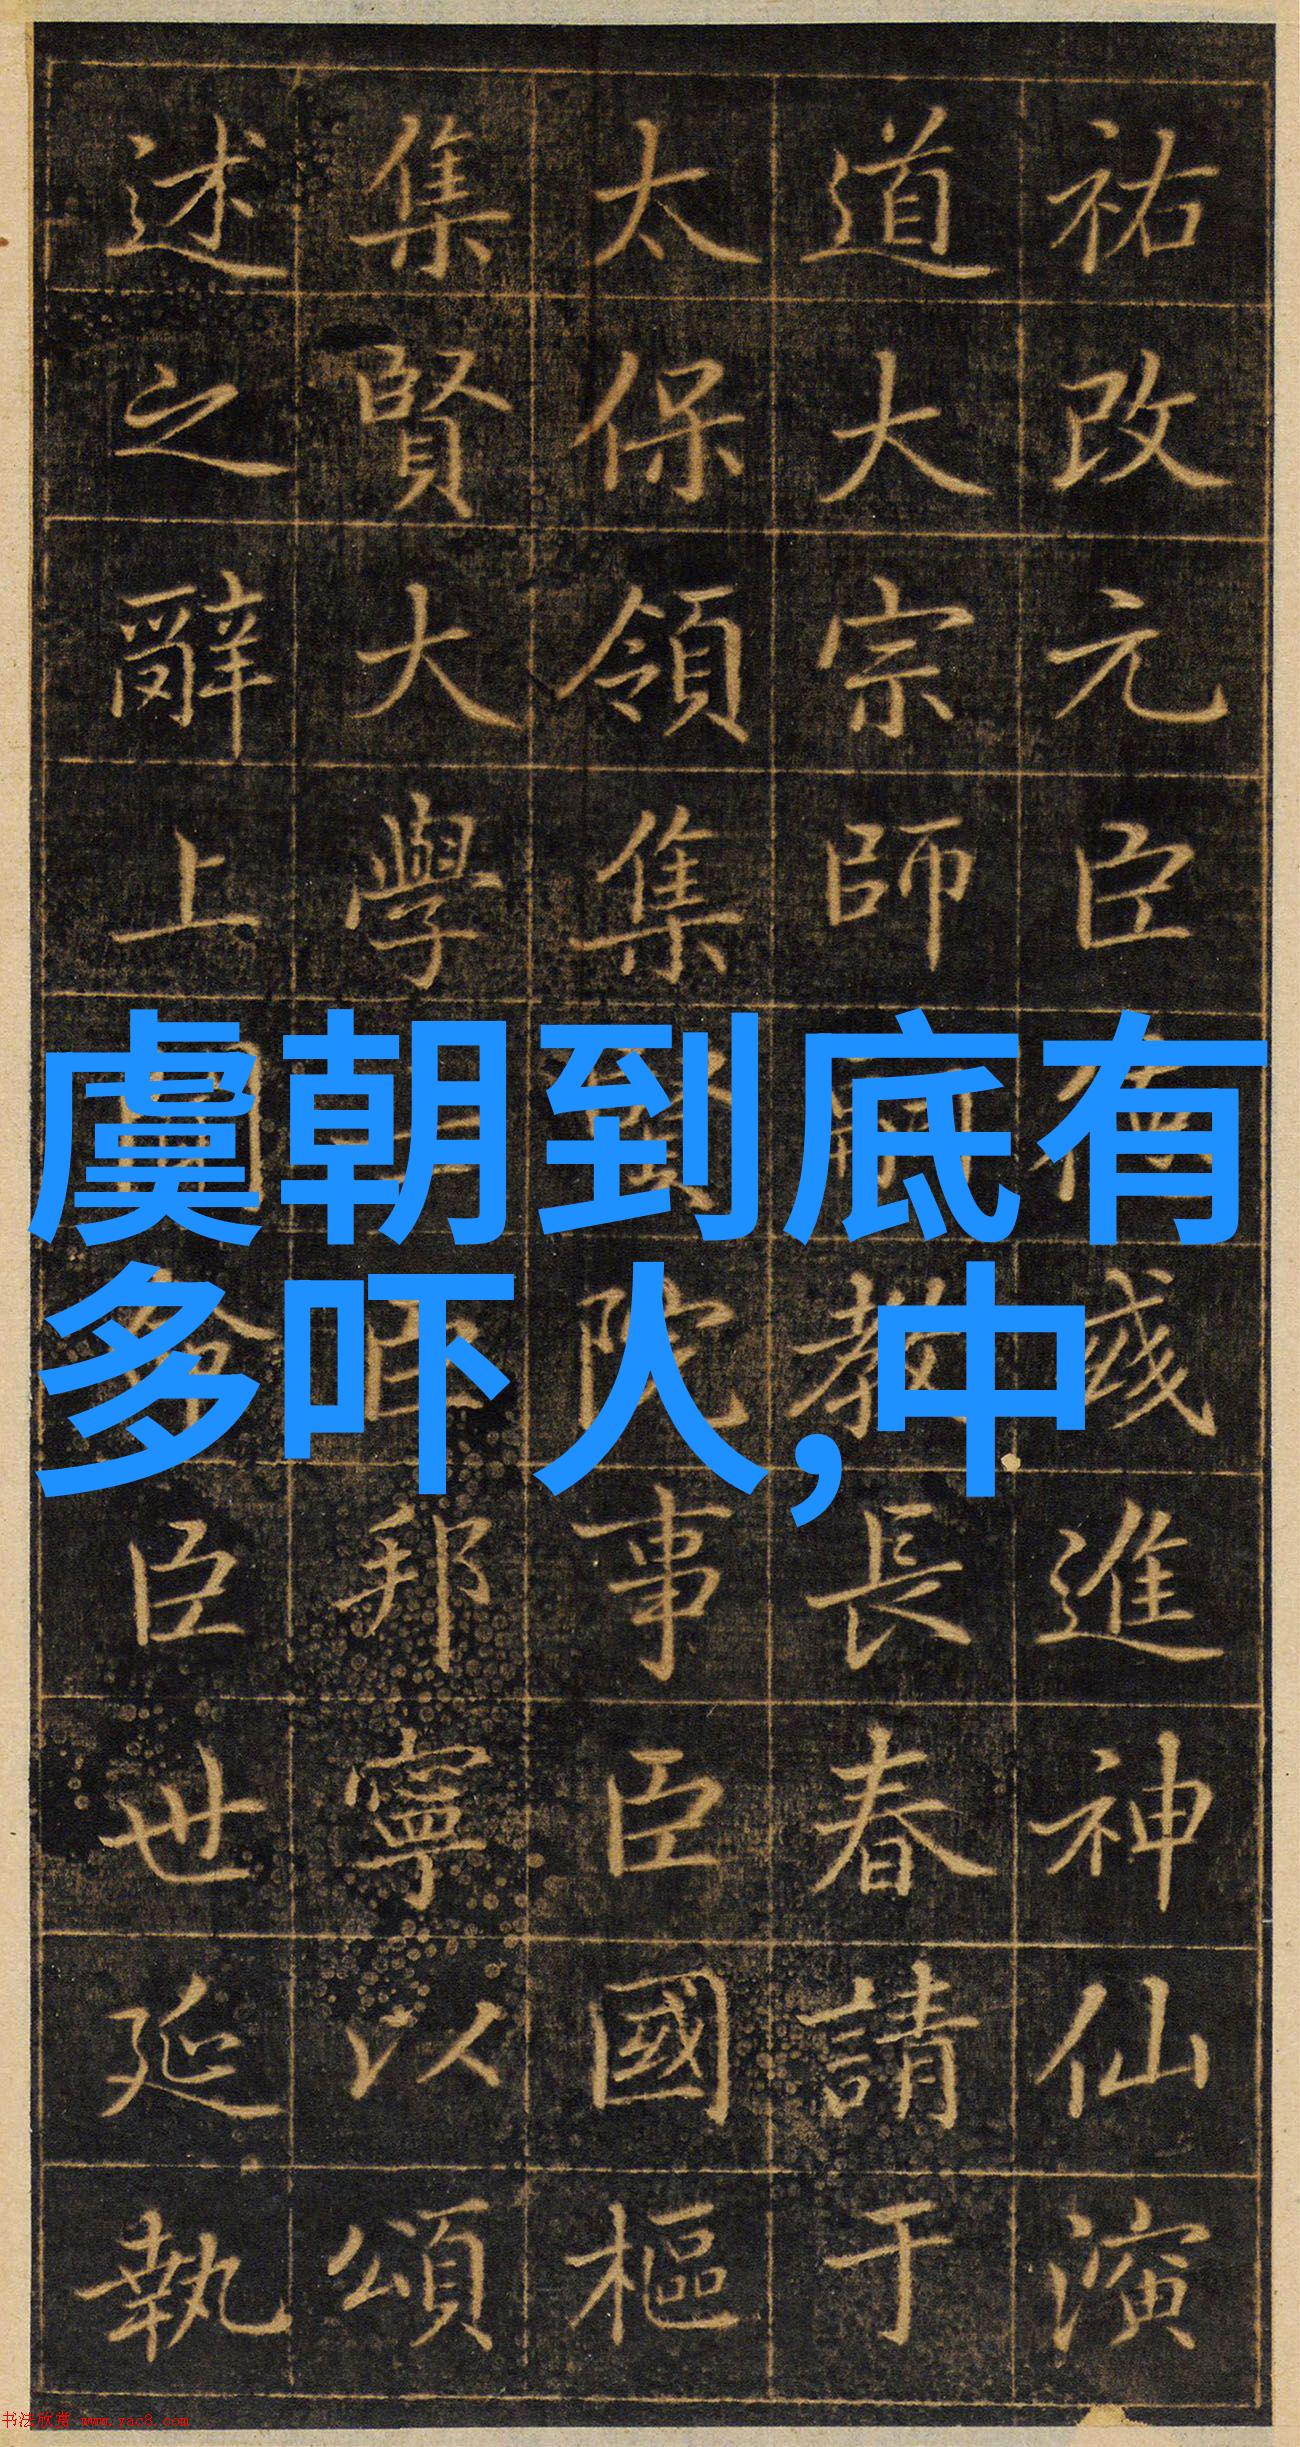 祐改元臣彧進神仙演
道大宗師教長春請于
太保領集賢院事臣國樞
集賢大學士臣邦寧以頌
述之辭上臣世延執
虞朝到底有
多吓人,中
书法欣赏 www.yac8.com